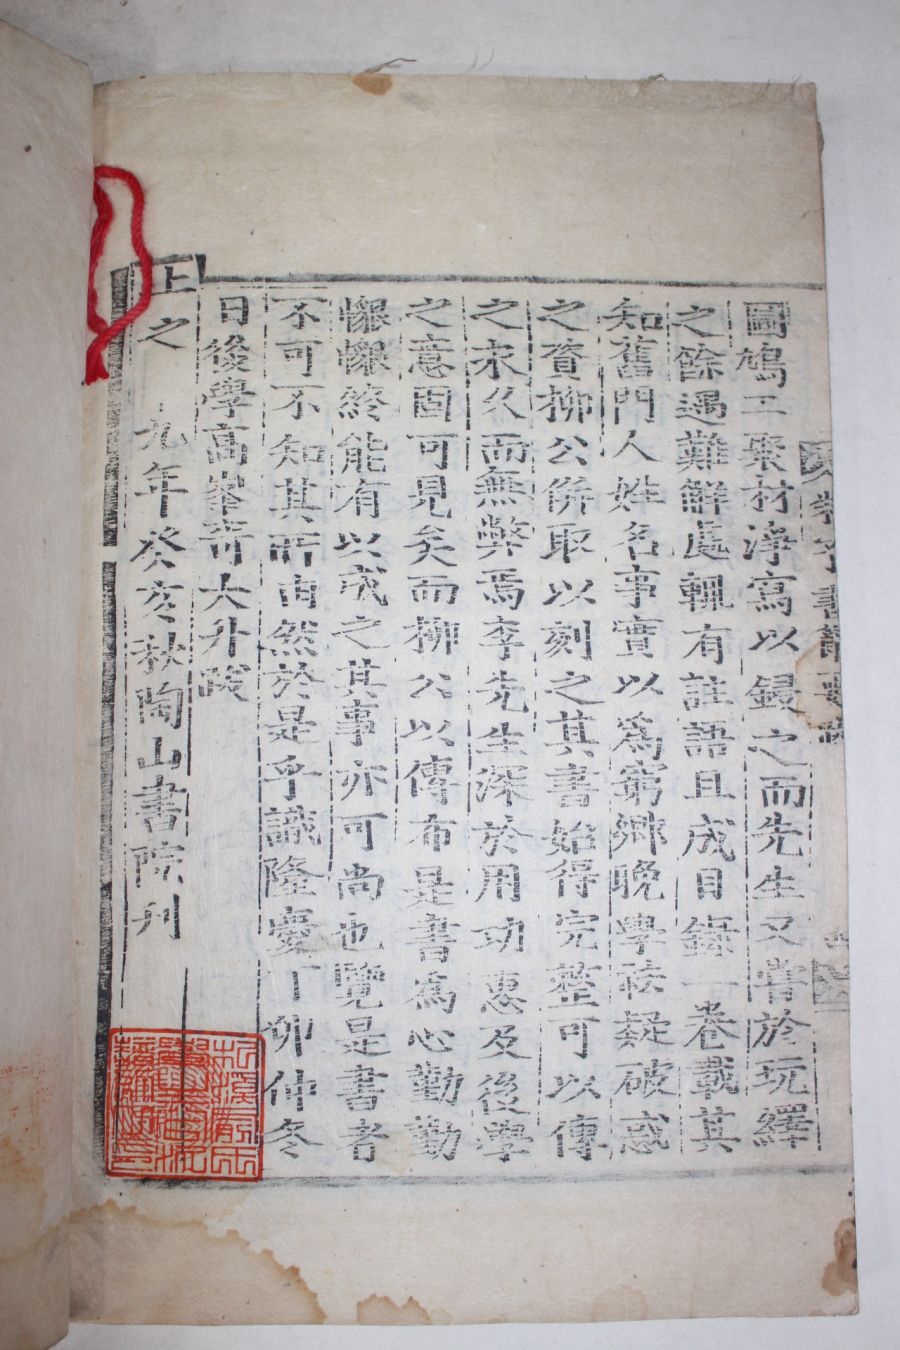 朱子書節要跋
圖鳩工聚材淨寫以錄之而先生又嘗於玩繹
之餘遇難解處輒有註語且成目錄一卷載其
知舊門人姓名事實以爲窮鄉晚學祛疑破惑
之資柳公倂取以刻之其書始得完整可以傳
之永久而無弊焉李先生深於用功惠及後學
之意固可見矣而柳公以傳布是書爲心勤勤
終能有以成之其事亦可尙也覽是書者
不可不知其所由然於是乎識隆慶丁卯仲冬
日後學高峯奇大升跋
上之 九年癸亥秋陶山書院刊